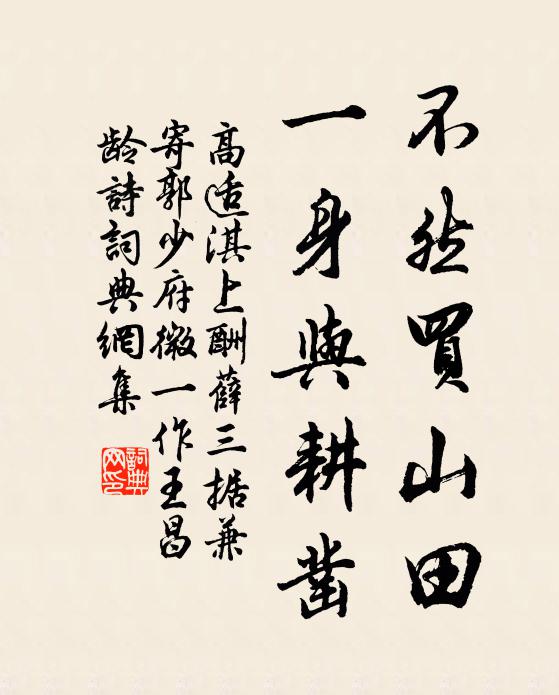 不然買山田
一身與耕鑿
高適淇上酬薛三據兼
寄郭少府微一作王昌
齡詩詞典網集
詞典網印